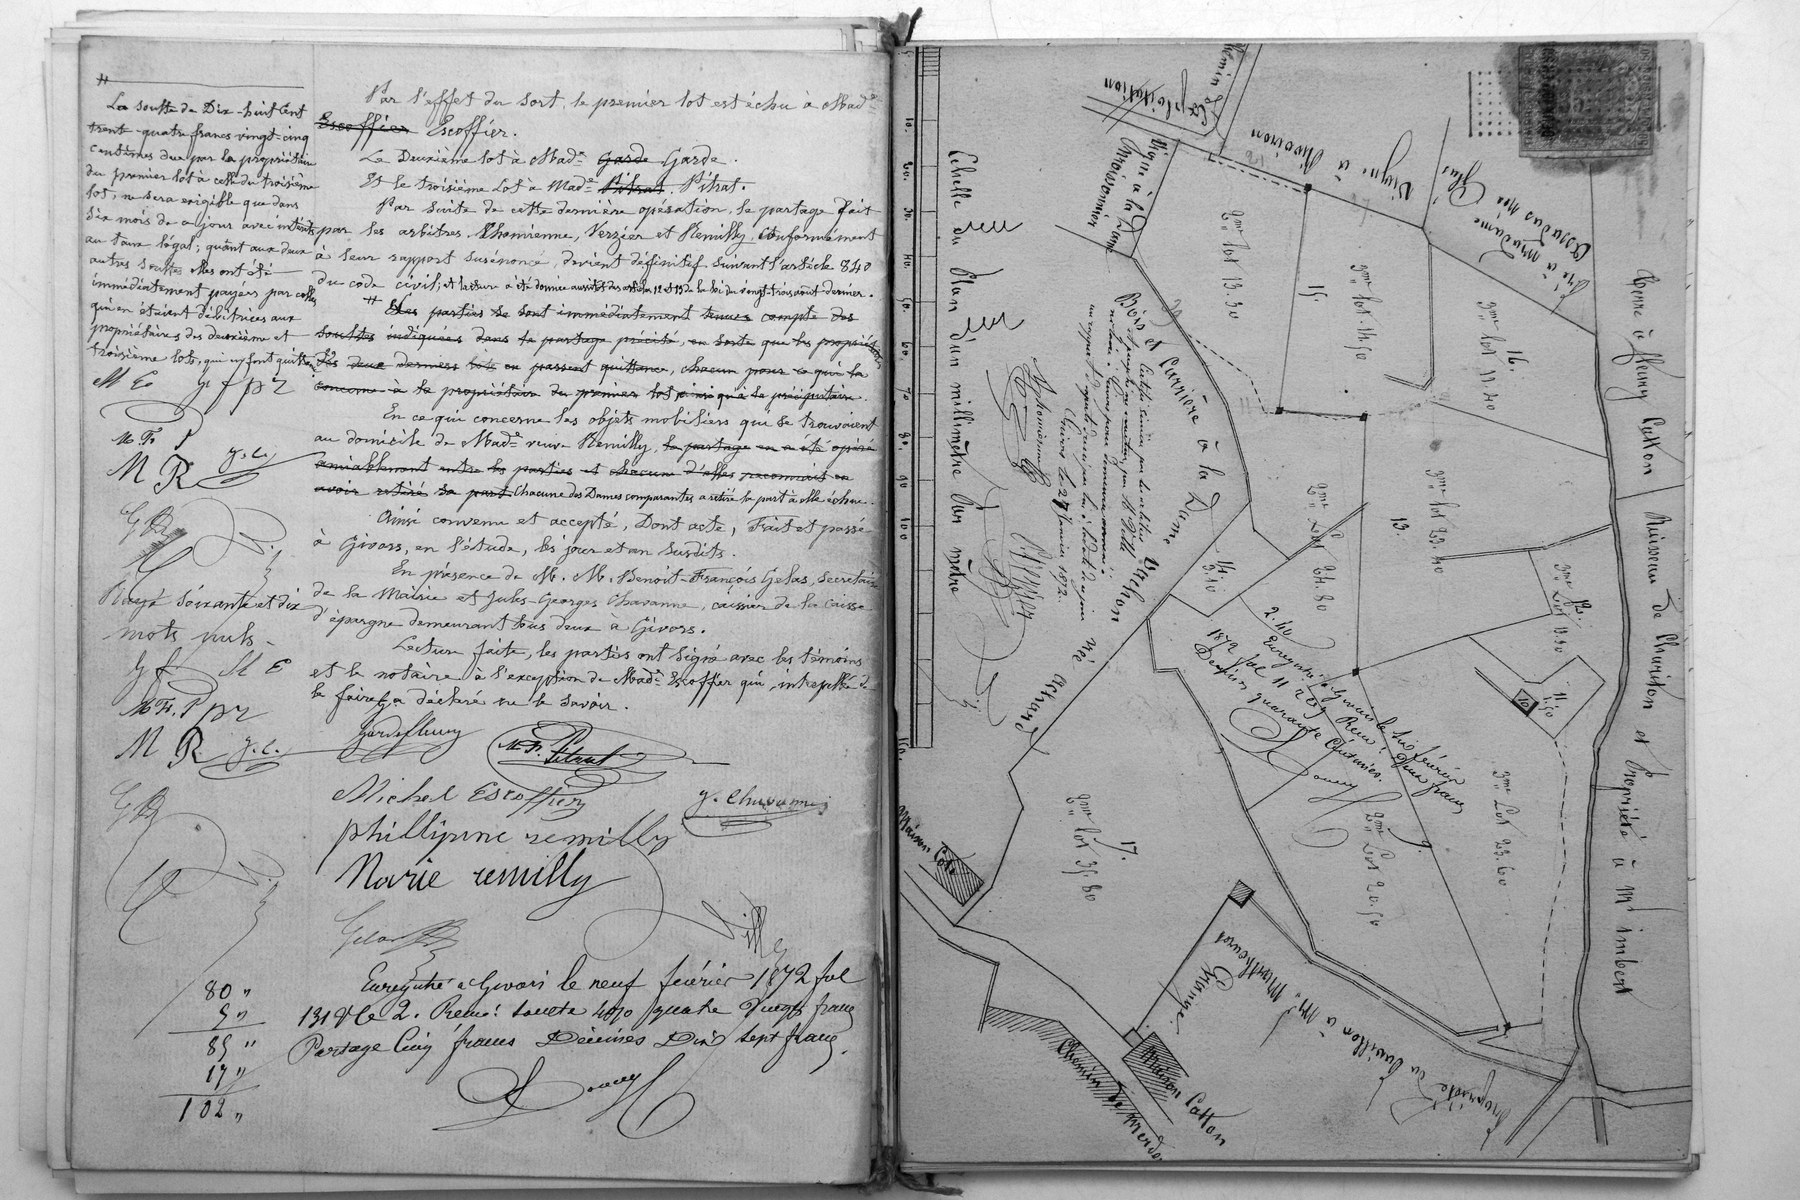 La soulte de Dix-huit Cent
trent-quatre francs vingt-cinq
centimes due par la propriétaire
du premier lot à celle du troisième
lot, ne sera exigible que dans
six mois de ce jour avec intérêts
au taux légal; quant aux deux
autres soultes elles ont été
immédiatement payées par celles
qui en étaient débitrices aux
propriétaires des deuxième et
troisième lots, qui en font quittance
M E g f p r
M. F. P
M R g. c.
Rayé soixante et dix
mots nuls
g f M E
M. F. P p r
M R g. c.
Par l'effet du sort, le premier lot est échu à Made
Escoffier Escoffier.
Le Deuxième lot à Made Garde Garde.
Et le troisième Lot à Made Pitrat Pitrat.
Par suite de cette dernière opération, le partage fait
par les arbitres Thomienne, Verzier et Remilly, Conformément
à leur rapport susénoncé, devient définitif suivant l'article 840
du code civil; et lecture a été donnée aussitôt des articles 12 et 13 de la loi du vingt-trois août dernier.
Les parties se sont immédiatement tenues compte des
soultes indiquées dans le partage précité, en sorte que les propriétaires
des deux derniers lots en passent quittance, chacun pour ce qui le
concerne à la propriétaire du premier lot ainsi qu'à la précipitaire.
En ce qui concerne les objets mobiliers qui se trouvaient
au domicile de Made veuve Remilly, le partage en a été opéré
amiablement entre les parties et chacune d'elles reconnait en
avoir retiré sa part Chacune des Dames comparantes a retiré la part à elle échue.
Ainsi convenu et accepté, Dont acte, Fait et passé
à Givors, en l'étude, les jour et an susdits.
En présence de M. M. Benoit-François Gelas, secrétaire
de la Mairie et Jules-Georges Chavanne, caissier de la caisse
d'épargne demeurant tous deux à Givors.
Lecture faite, les parties ont signé avec les témoins
et le notaire à l'exception de Made Escoffier qui, interpellée de
le faire a déclaré ne le savoir.
Garde fleury
M. F. Pitrat
Michel Escoffier
g. Chavanne
phillipine remilly
Marie remilly
Gelas
Enregistré à Givors le neuf février 1872 fol
131 Vo Ce 2. Reçu: soulte 4 % quatre vingts francs
Partage Cinq francs Décimes Dix sept francs.
80 "
5 "
85 "
17 "
102 "
Echelle du Plan d'un millimètre Par mètre
10. 20. 30. 40. 50. 60. 70. 80. 90 100
Chemin d'Exploitation
Vigne à la Dame
Vigne à Mivoinon
Pré à Madame
Terre à fleury Catton
Ruisseau de et Propriété à Mr imbert
Bois et Carrière à la Dame Vachon
Givors le 27 Janvier 1872.
2me lot 13.30
15.
3me lot. 11.50
16.
3me lot 17.40
2me Lot 24.80
13.
3me lot 23.40
14.
3.10
12.
3me Lot
11.
11.50
10
2.40
Enregistré à Givors le six février
1872 fol 11 Reçu: Deux francs
Decimes quarante Centimes.
3me Lot 23.60
9.
2me Lot 20.50
17.
2me lot 35.80
Pré
Maison
Grange.
Maison Catton
Chemin
Propriété du